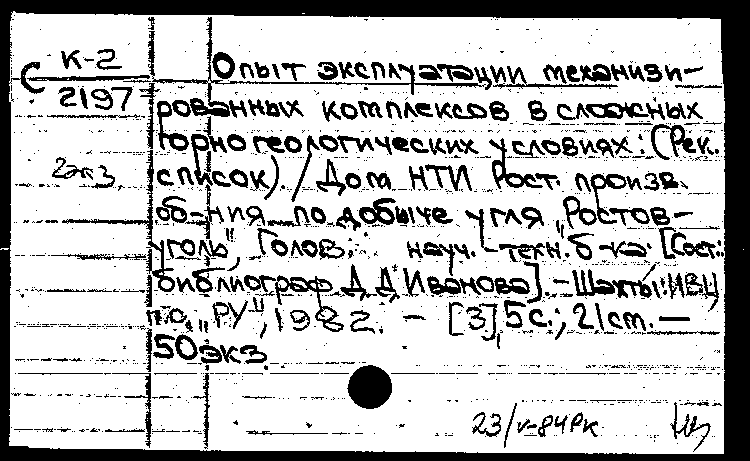 С К-2
2197
2экз.
Опыт эксплуатации механизи-
рованных комплексов в сложных
горногеологических условиях: (Рек.
список). / Дом НТИ Рост. произв.
об-ния по добыче угля „Ростов-
уголь", Голов. науч.-техн. б-ка. [Сост.:
библиограф Д.Д. Иванова]. - Шахты: ИВЦ
п.о. „РУ", 1982. - [3], 5 с.; 21 cm. —
50 экз.
23/V-84 Рк